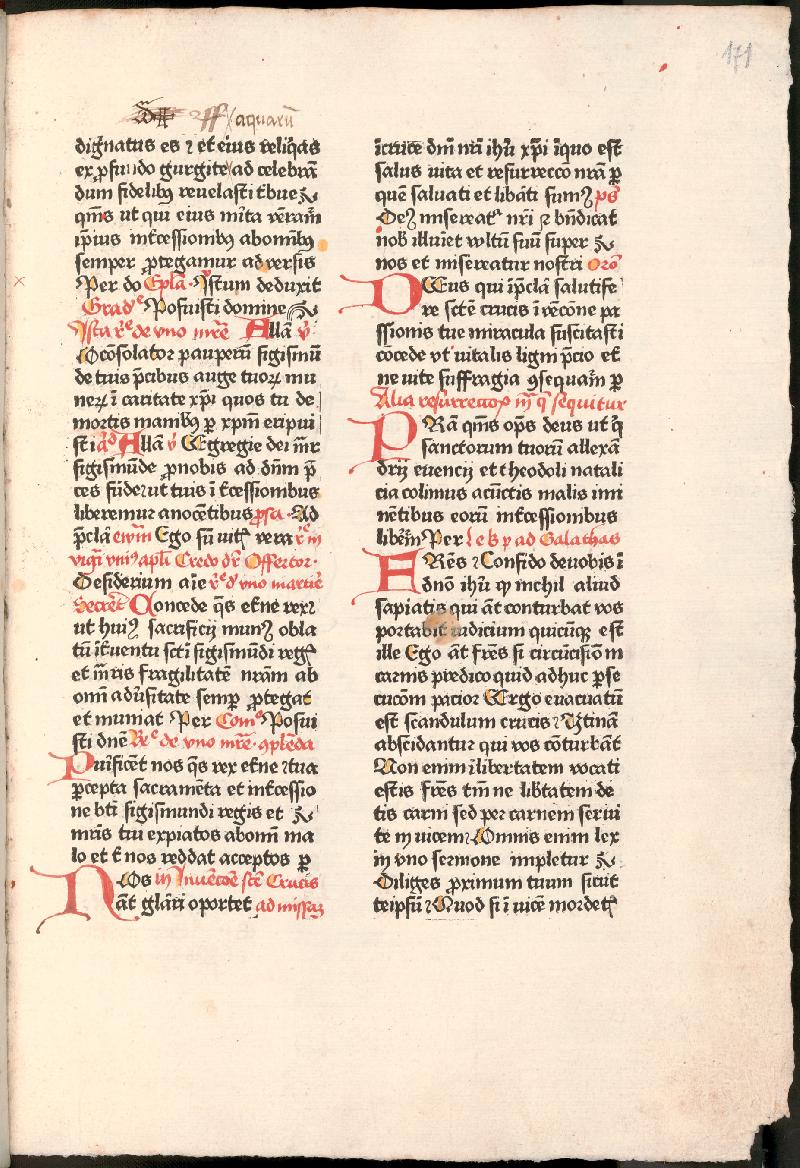 171
aquarū
dignatus es ⁊ et eius reliq̄as
ex ꝓfundo gurgite ad celebrā
dum fidelibꝰ reuelasti t̄bue
qm̄s ut qui eius mīta verām
ip̄ius int̄cessionibꝰ ab omībꝰ
semper ꝓtegamur aduersis
Per do Ep̄la Iustum deduxit
Gradᵉ Posuisti domine
Ista vᵉ de vno mr̄e Allā v̄
O cōsolator pauperū sigismū
de tuis p̄cibus auge tuoꝝ mu
neꝝ ī caritate xp̄i quos tu de
mortis manibꝰ ꝑ xpm̄ eripui
sti ad Allā v̄ Egregie dei mr̄
sigismūde ꝓ nobis ad dn̄m p̄
ces fūde ut tuis īt̄cessionibus
liberemur a nocētibus ꝓsa Ad
p̄clā ewm̄ Ego sū uit̄ vera
vigīi vniꝰ apl̄i Credo dr̄ Offertor
Desiderium aīe vᵉ d̄ vno martire
Secret̄ Concede q̄s et̄ne rex
ut huiꝰ sacrificij munꝰ obla
tū īt̄uentu scti sigismūdi reḡ
et mr̄is fragilitatē nr̄am ab
om̄i adūsitate semꝑ ꝓtegat
et muniat Per Comᵉ Posui
sti dn̄e Reᵉ de vno mr̄e ꝯplēda
Purificēt nos q̄s rex et̄ne ⁊ tua
ꝑcepta sacramēta et int̄cessio
ne bti sigismundi regis et
mr̄is tui expiatos ab om̄i ma
lo et t̄ nos reddat acceptos ꝑ
Nos in Inuēcōe scē Crucis
āt glāri oportet ad missaꝫ
ī cruce dn̄i nr̄i ihū xp̄i ī quo est
salus uita et resurreccō nr̄a ꝑ
quē saluati et lib̄ati sumꝰ p̄s
Deꝰ misereatᵘ nr̄i ⁊ bn̄dicat
nob̄ illuīet vultū suū super
nos et misereatur nostri Orō
DEus qui ī p̄clā salutife
re sctē crucis īuēcōne pa
ssionis tue miracula suscitasti
cōcede vt uitalis ligni p̄cio et̄
ne uite suffragia ꝯsequam̄ ꝑ
PRā qm̄s op̄s deus ut q̄
sanctorum tuorū allexā
drij euencij et theodoli natali
cia colimus a cūctis malis imi
nētibus eorū int̄cessionibus
libēm̄ Per Le b p ad Galathas
FRēs Confido de uobis ī
dn̄o ihū ꝙ nichil aliud
sapiatis qui āt conturbat vos
portabit iudicium quicūqꝫ est
ille Ego āt frēs si circūcisiōm
carnis predico quid adhuc ꝑse
cucōm pacior Ergo euacuatū
est scandulum crucis Vtinā
abscidantur qui vos cōturbāt
Uos enim ī libertatem vocati
estis frēs tm̄ ne lib̄tatem de
tis carni sed per carnem serui
te in uicem Omnis enim lex
in vno sermone impletur
Diliges proximum tuum sicut
teipsū Quod si ī uicē mordet̄